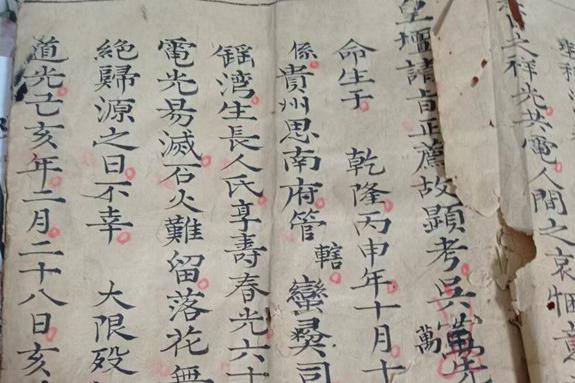 之祥光共電人間之哀悃意
皇壇請旨正薦故顯考吳萬先
萬
命生于 乾隆丙申年十月十
係貴州思南府管轄 蠻彞司
鎐湾生長人氏享壽春光六十
電光易滅石火難留落花無
絶歸源之日不幸 大限殁
道光己亥年二月二十八日亥